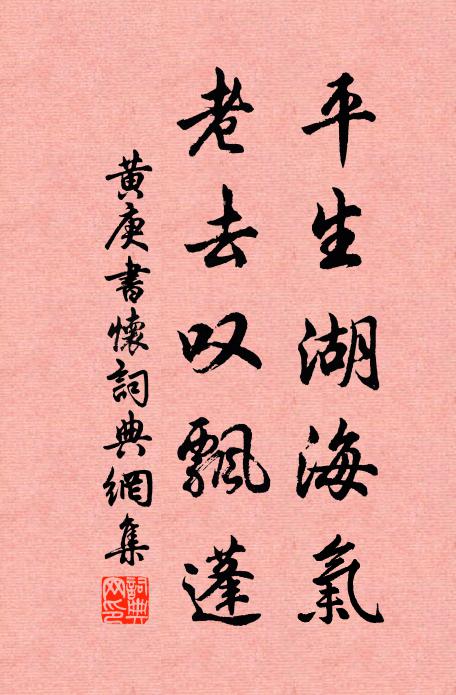 平生湖海氣
老去叹飄蓬
黄庚書懷詞典網集
詞典网印